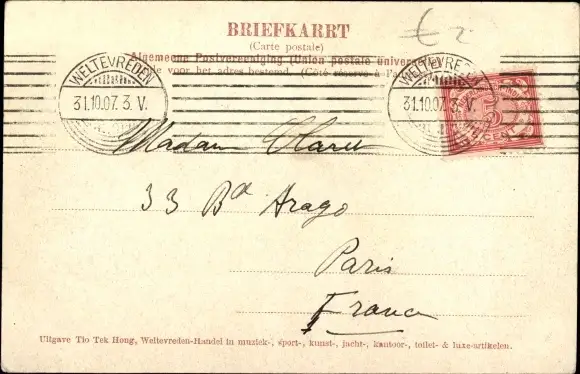 BRIEFKARRT
(Carte postale)
Algemeene Postvereeniging (Union postale universe
voor het adres bestemd. (Côté réservé à l'a
€ 2
WELTEVREDEN
31.10.07. 3. V.
WELTEVREDEN
31.10.07. 3. V.
5
CENT
Madam
33 Bd Arago
Paris
France
Uitgave Tio Tek Hong, Weltevreden-Handel in muziek-, sport-, kunst-, jacht-, kantoor-, toilet- & luxe-artikelen.